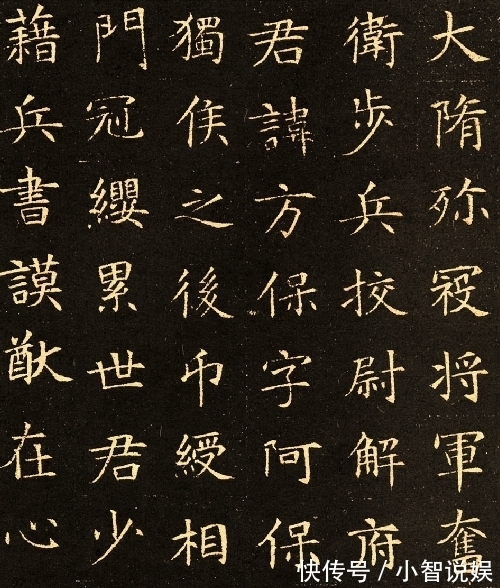 大隋殄寇将軍奮
衛歩兵挍尉解府
君諱方保字阿保
獨侯之後币綬相
門冠纓累世君少
藉兵書謨猷在心
快传号/小智说娱